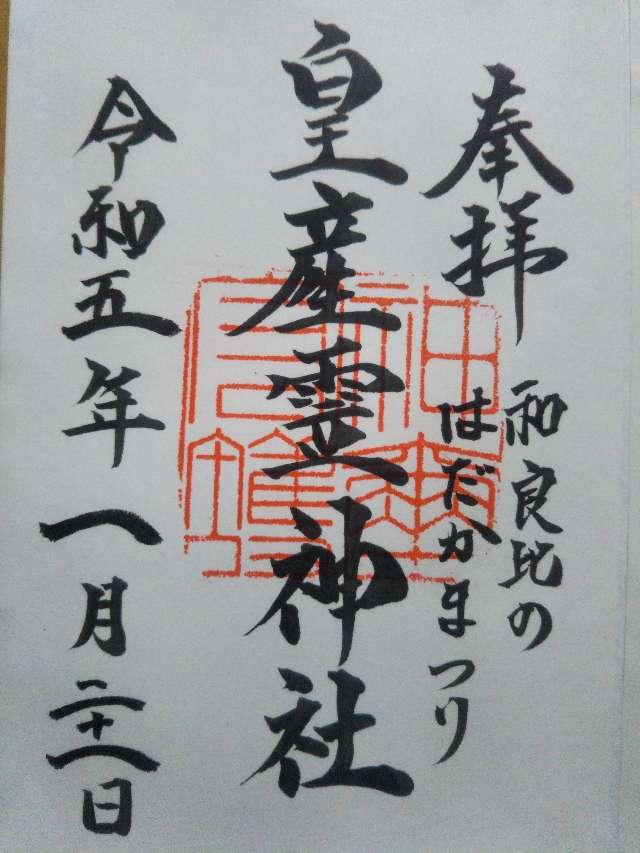 奉拝
和良比の
はだかまつり
皇産霊神社
令和五年一月二十一日